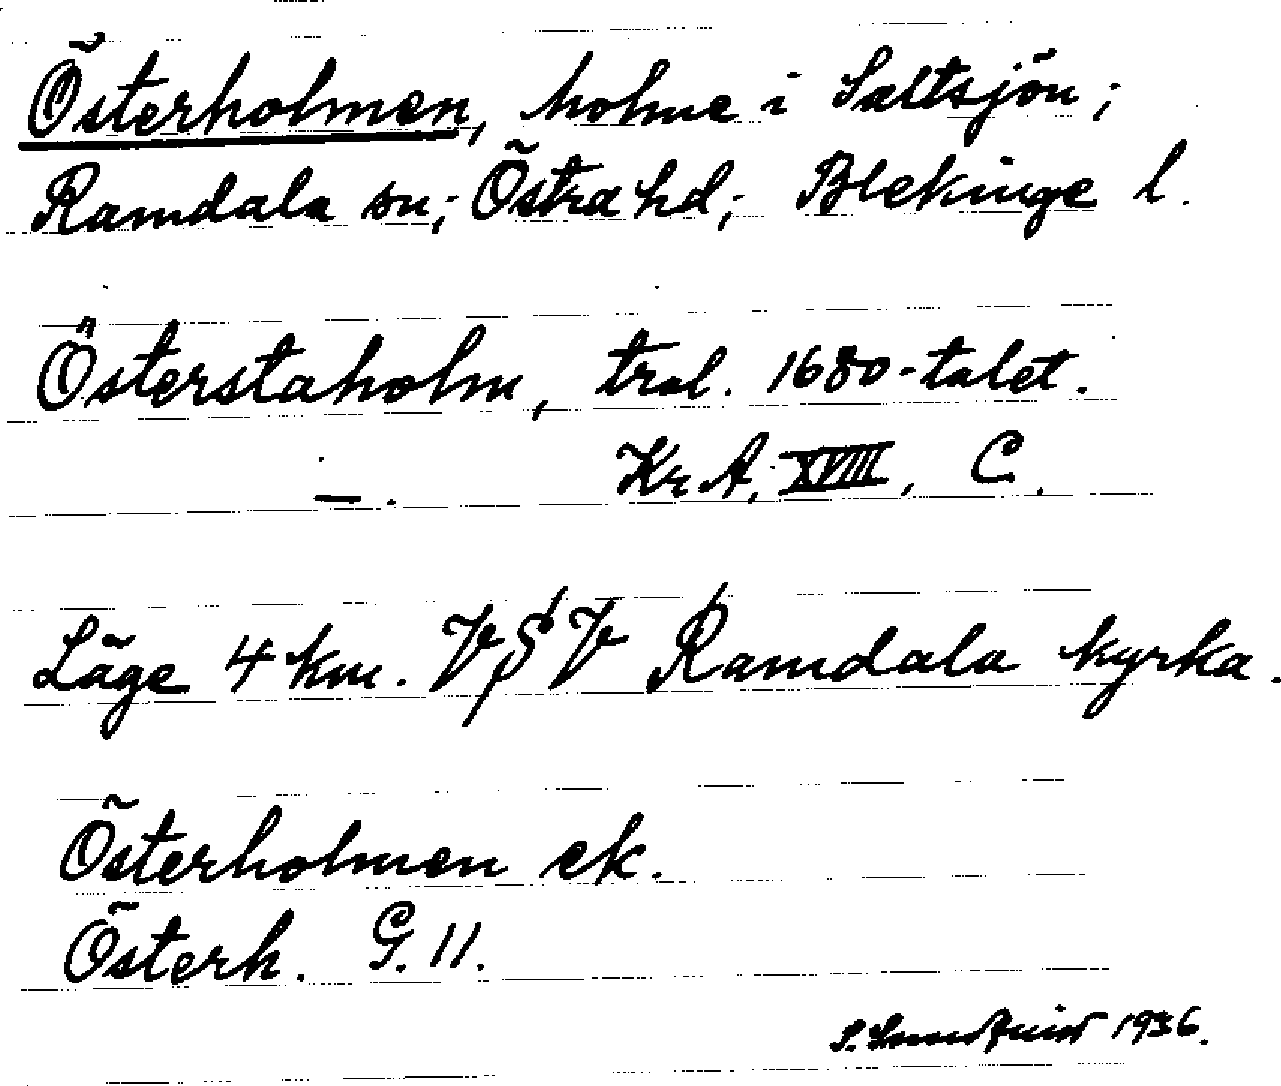 Österholmen, holme i Saltsjön;
Ramdala sn; Östra hd; Blekinge l.
Österstaholm, tral. 1680-talet.
—. Kr. A, XVIII, C.
Läge 4 km. VSV Ramdala kyrka.
Österholmen ek.
Österh. G. 11.
S. 1936.